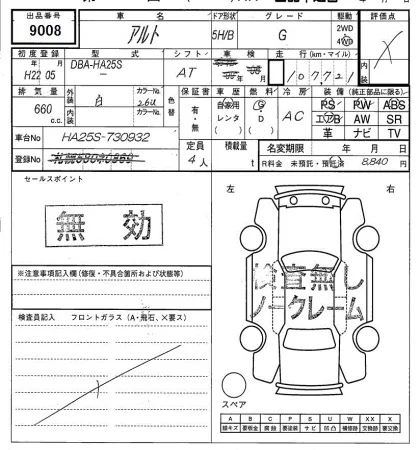 出品番号 車名 ドア形状 グレード 駆動 評価点
9008 アルト 5H/B G 2WD 4WD X
初度登録 型式 シフト 車検 走行(km・マイル) 内装
年 月 H22 05 DBA-HA25S - AT 107,721
排気量 外装 内装 カラーNo. 色替 保証書 車歴 燃料 冷房 装備(純正部品に限る)
660 c.c. 白 26U カラーNo. 有・無 自家用 レンタ G D AC PS PW ABS
エアB AW SR
革 ナビ TV
車台No HA25S-730932 定員 積載量 名変期限 年 月 日
登録No 4人 t R料金 未預託・預託済 8,840 円
セールスポイント
左 右
無効
検査無し
ノークレーム
※注意事項記入欄(修復・不具合箇所および状態等)
検査員記入 フロントガラス(A・飛石、X要ス)
スペア
A B C P S U W X XX
線キズ 要板金 腐蝕 要塗装 サビ 凹凸 補修跡 要交換